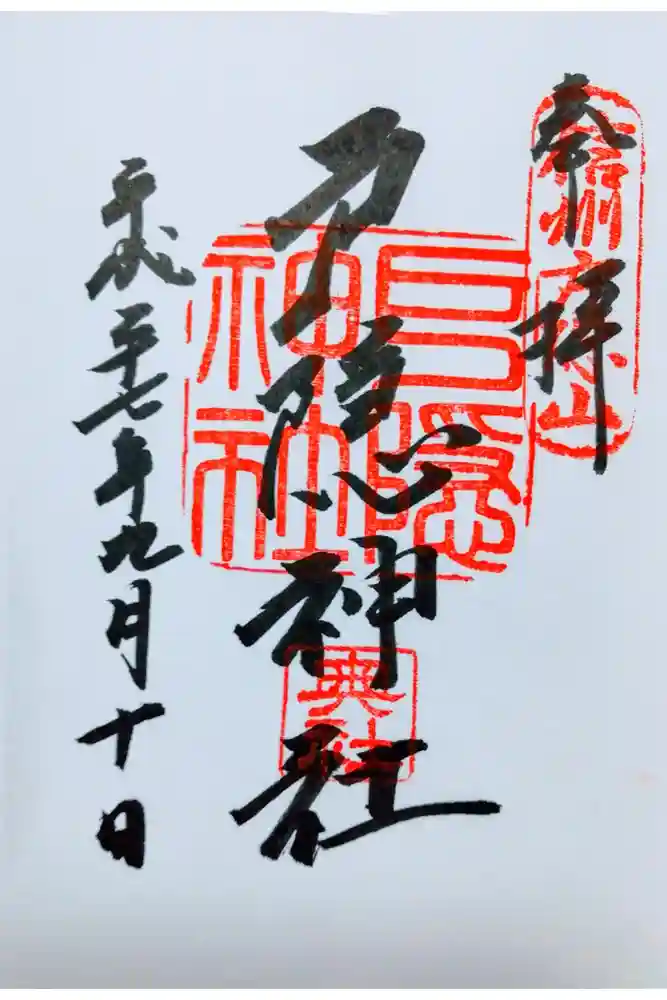 奉拝
信州戸隠山
戸隠神社
戸隠神社
奥社
平成二十七年九月十日